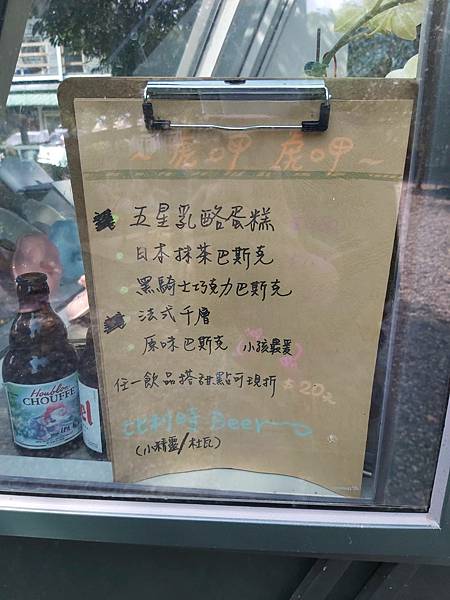 ~虎呷 虎呷~
五星乳酪蛋糕
日本抹茶巴斯克
黑騎士巧克力巴斯克
法式千層
原味巴斯克(小孩最愛)
任一飲品搭甜點可現折$20元
比利時 Beer
(小精靈/杜瓦)
Houblon
CHOUFFE
IPA
el